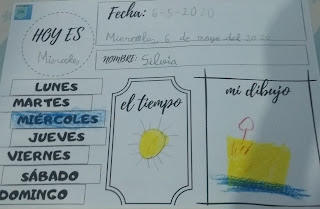 Fecha: 6-5-2020
HOY ES
Miercoles
Miercoles, 6 de mayo del 2020
NOMBRE: Silvia
LUNES
MARTES
MIÉRCOLES
JUEVES
VIERNES
SÁBADO
DOMINGO
el tiempo
mi dibujo